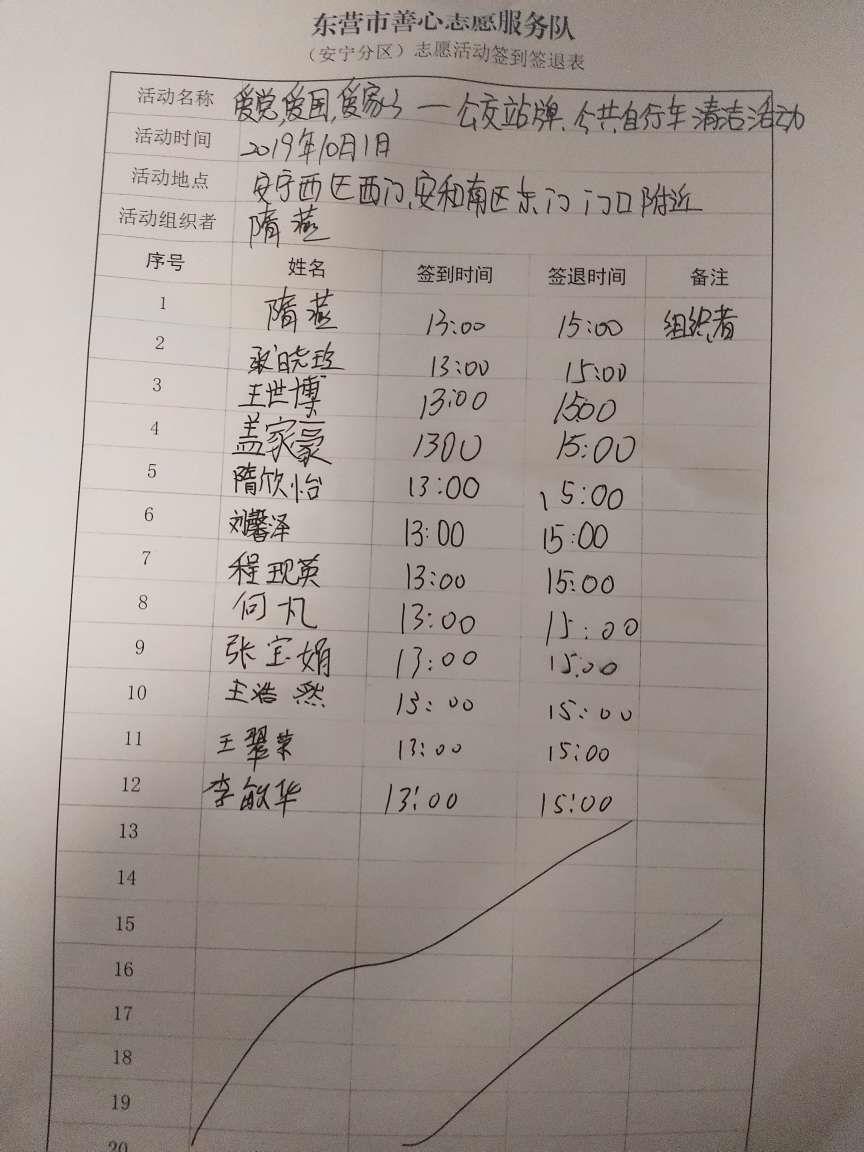 东营市善心志愿服务队
（安宁分区）志愿活动签到签退表
活动名称 爱党,爱国,爱家乡 — 公交站牌、公共自行车清洁活动
活动时间 2019年10月1日
活动地点 安宁西区西门、安和南区东门门口附近
活动组织者 隋燕
序号 姓名 签到时间 签退时间 备注
1 隋燕 13:00 15:00 组织者
2 晓玲 13:00 15:00
3 王世博 13:00 1500
4 盖家豪 1300 15:00
5 隋欣怡 13:00 15:00
6 刘馨泽 13:00 15:00
7 程现英 13:00 15:00
8 何凡 13:00 15:00
9 张宝娟 13:00 15:00
10 王浩然 13:00 15:00
11 王翠荣 13:00 15:00
12 李敏华 13:00 15:00
13
14
15
16
17
18
19
20